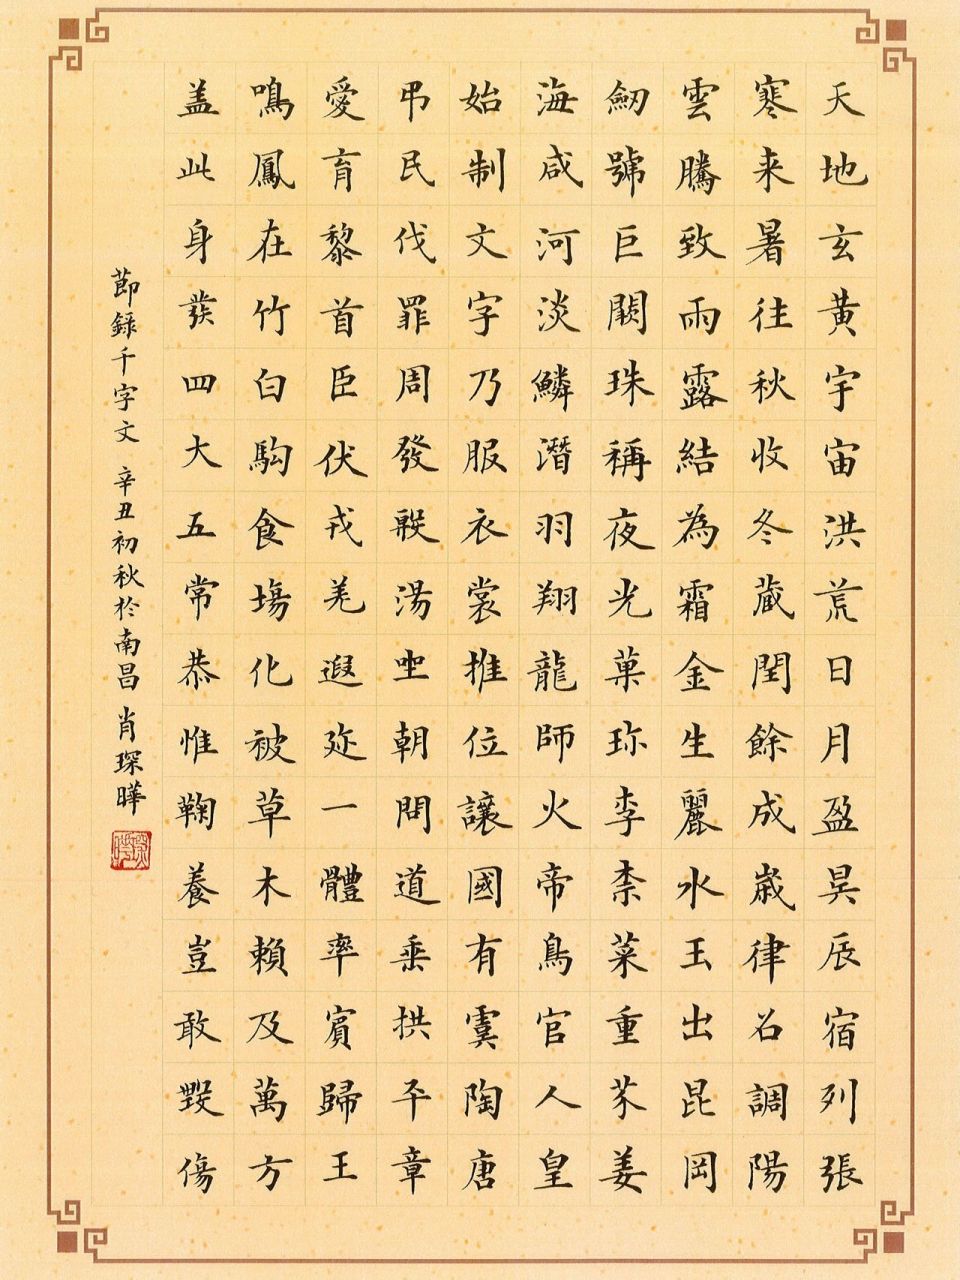 天地玄黃宇宙洪荒日月盈昃辰宿列張
寒来暑往秋收冬蔵閏餘成嵗律召調陽
雲騰致雨露結為霜金生麗水玉出昆岡
劒號巨闕珠稱夜光菓珎李柰菜重芥姜
海咸河淡鱗潛羽翔龍師火帝鳥官人皇
始制文字乃服衣裳推位讓國有虞陶唐
弔民伐罪周發殷湯坐朝問道垂拱平章
愛育黎首臣伏戎羌遐迩一體率賓歸王
鳴鳳在竹白駒食場化被草木賴及萬方
盖此身髮四大五常恭惟鞠養豈敢毀傷
節錄千字文 辛丑初秋於南昌 肖琛曄